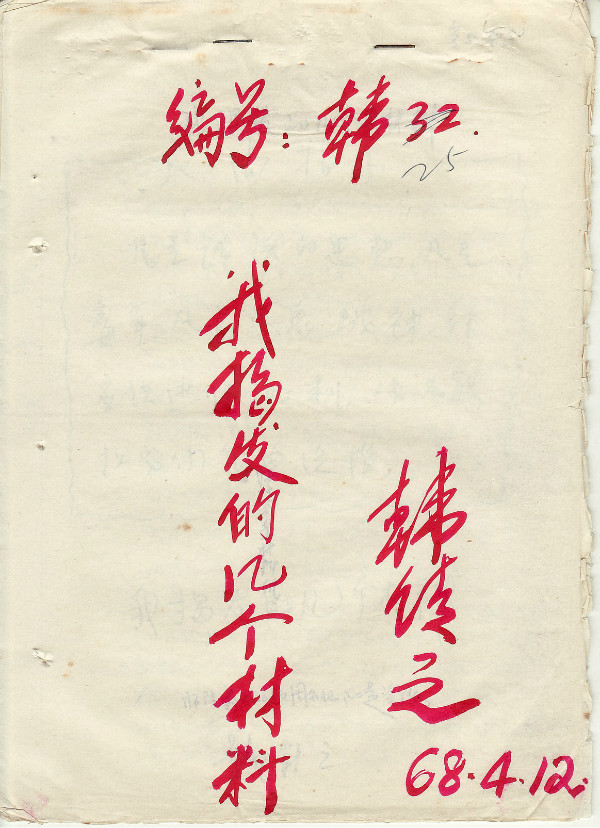 编号：韩32.
25
我揭发的几个材料
韩倩之
68.4.12.